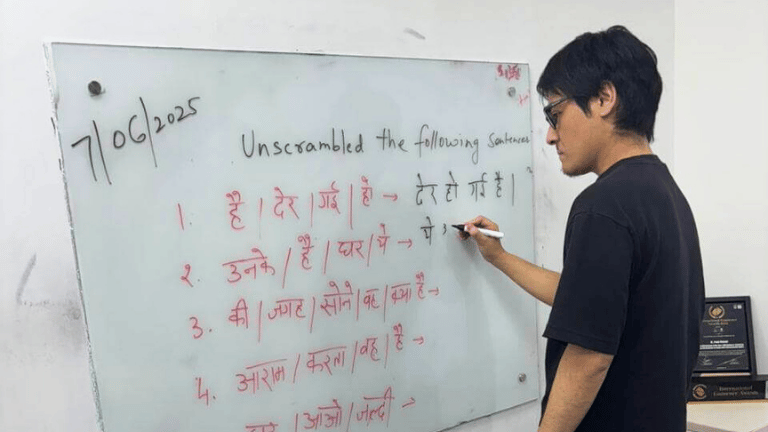 7/06/2025
Unscrambled the following Sentences
1. है / देर / गई / हो → देर हो गई है |
2. उनके / हैं / घर / ये → ये
3. की / जगह / सोने / वह / क्या है →
4. आराम / करता / वह / है →
आओ / जल्दी →
International